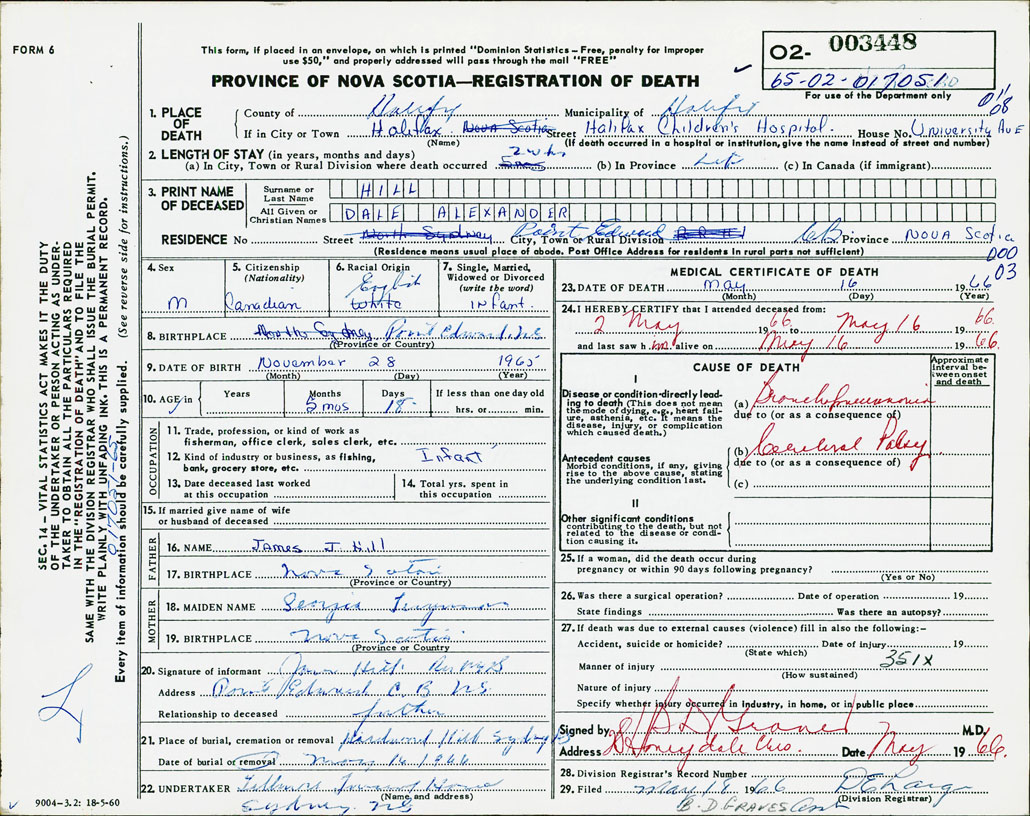 FORM 6
This form, if placed in an envelope, on which is printed "Dominion Statistics – Free, penalty for improper
use $50," and properly addressed will pass through the mail "FREE"
PROVINCE OF NOVA SCOTIA—REGISTRATION OF DEATH
02- 003448
65-02-017051
For use of the Department only
1. PLACE OF DEATH
County of Halifax Municipality of Halifax
If in City or Town Halifax Nova Scotia Street Halifax Children's Hospital. House No. University Ave
(Name) (If death occurred in a hospital or institution, give the name instead of street and number)
2. LENGTH OF STAY (in years, months and days)
(a) In City, Town or Rural Division where death occurred 2 wks (b) In Province Life (c) In Canada (if immigrant)
3. PRINT NAME OF DECEASED
Surname or Last Name HILL
All Given or Christian Names DALE ALEXANDER
RESIDENCE No Street North Sydney City, Town or Rural Division Point Edward CB Province NOVA Scotia
(Residence means usual place of abode. Post Office Address for residents in rural parts not sufficient)
000
03
4. Sex M
5. Citizenship (Nationality) Canadian
6. Racial Origin English White
7. Single, Married, Widowed or Divorced (write the word) Infant.
8. BIRTHPLACE North Sydney Point Edward N.S.
(Province or Country)
9. DATE OF BIRTH November 28 1965
(Month) (Day) (Year)
10. AGE Years Months 5 mos Days 18 If less than one day old hrs. or min.
OCCUPATION
11. Trade, profession, or kind of work as
fisherman, office clerk, sales clerk, etc.
12. Kind of industry or business, as fishing,
bank, grocery store, etc. Infant
13. Date deceased last worked
at this occupation
14. Total yrs. spent in
this occupation
15. If married give name of wife
or husband of deceased
FATHER
16. NAME James J. Hill
17. BIRTHPLACE Nova Scotia
(Province or Country)
MOTHER
18. MAIDEN NAME Georgia Ferguson
19. BIRTHPLACE Nova Scotia
(Province or Country)
20. Signature of informant James Hill
Address Point Edward C.B. N.S.
Relationship to deceased father
21. Place of burial, cremation or removal Hardwood Hill Sydney
Date of burial or removal May 16 1966
22. UNDERTAKER Fillmore Funeral Home
(Name and address)
Sydney. N.S
MEDICAL CERTIFICATE OF DEATH
23. DATE OF DEATH May 16 1966
(Month) (Day) (Year)
24. I HEREBY CERTIFY that I attended deceased from:
2 May 1966 to May 16 1966.
and last saw him alive on May 16 1966.
CAUSE OF DEATH
Approximate interval between onset and death
I
Disease or condition directly leading to death (This does not mean
the mode of dying, e.g., heart failure, asthenia, etc. It means the
disease, injury, or complication
which caused death.)
(a) Bronchopneumonia
due to (or as a consequence of)
(b) Cerebral Palsy
due to (or as a consequence of)
(c)
Antecedent causes
Morbid conditions, if any, giving
rise to the above cause, stating
the underlying condition last.
II
Other significant conditions
contributing to the death, but not
related to the disease or condition causing it.
25. If a woman, did the death occur during
pregnancy or within 90 days following pregnancy?
(Yes or No)
26. Was there a surgical operation? Date of operation 19
State findings Was there an autopsy?
27. If death was due to external causes (violence) fill in also the following:–
Accident, suicide or homicide? Date of injury 19
(State which)
351X
Manner of injury
(How sustained)
Nature of injury
Specify whether injury occurred in Industry, in home, or in public place
Signed by B D Graves M.D.
Address Honeydale Date May 1966.
28. Division Registrar's Record Number
29. Filed May 18 1966
(Division Registrar)
B.D. GRAVES
SEC. 14 – VITAL STATISTICS ACT MAKES IT THE DUTY
OF THE UNDERTAKER OR PERSON ACTING AS UNDERTAKER TO OBTAIN ALL THE PARTICULARS REQUIRED
IN THE "REGISTRATION OF DEATH" AND TO FILE THE
SAME WITH THE DIVISION REGISTRAR WHO SHALL ISSUE THE BURIAL PERMIT.
WRITE PLAINLY WITH UNFADING INK. THIS IS A PERMANENT RECORD.
Every item of information should be carefully supplied. (See reverse side for instructions.)
9004-3.2: 18-5-60